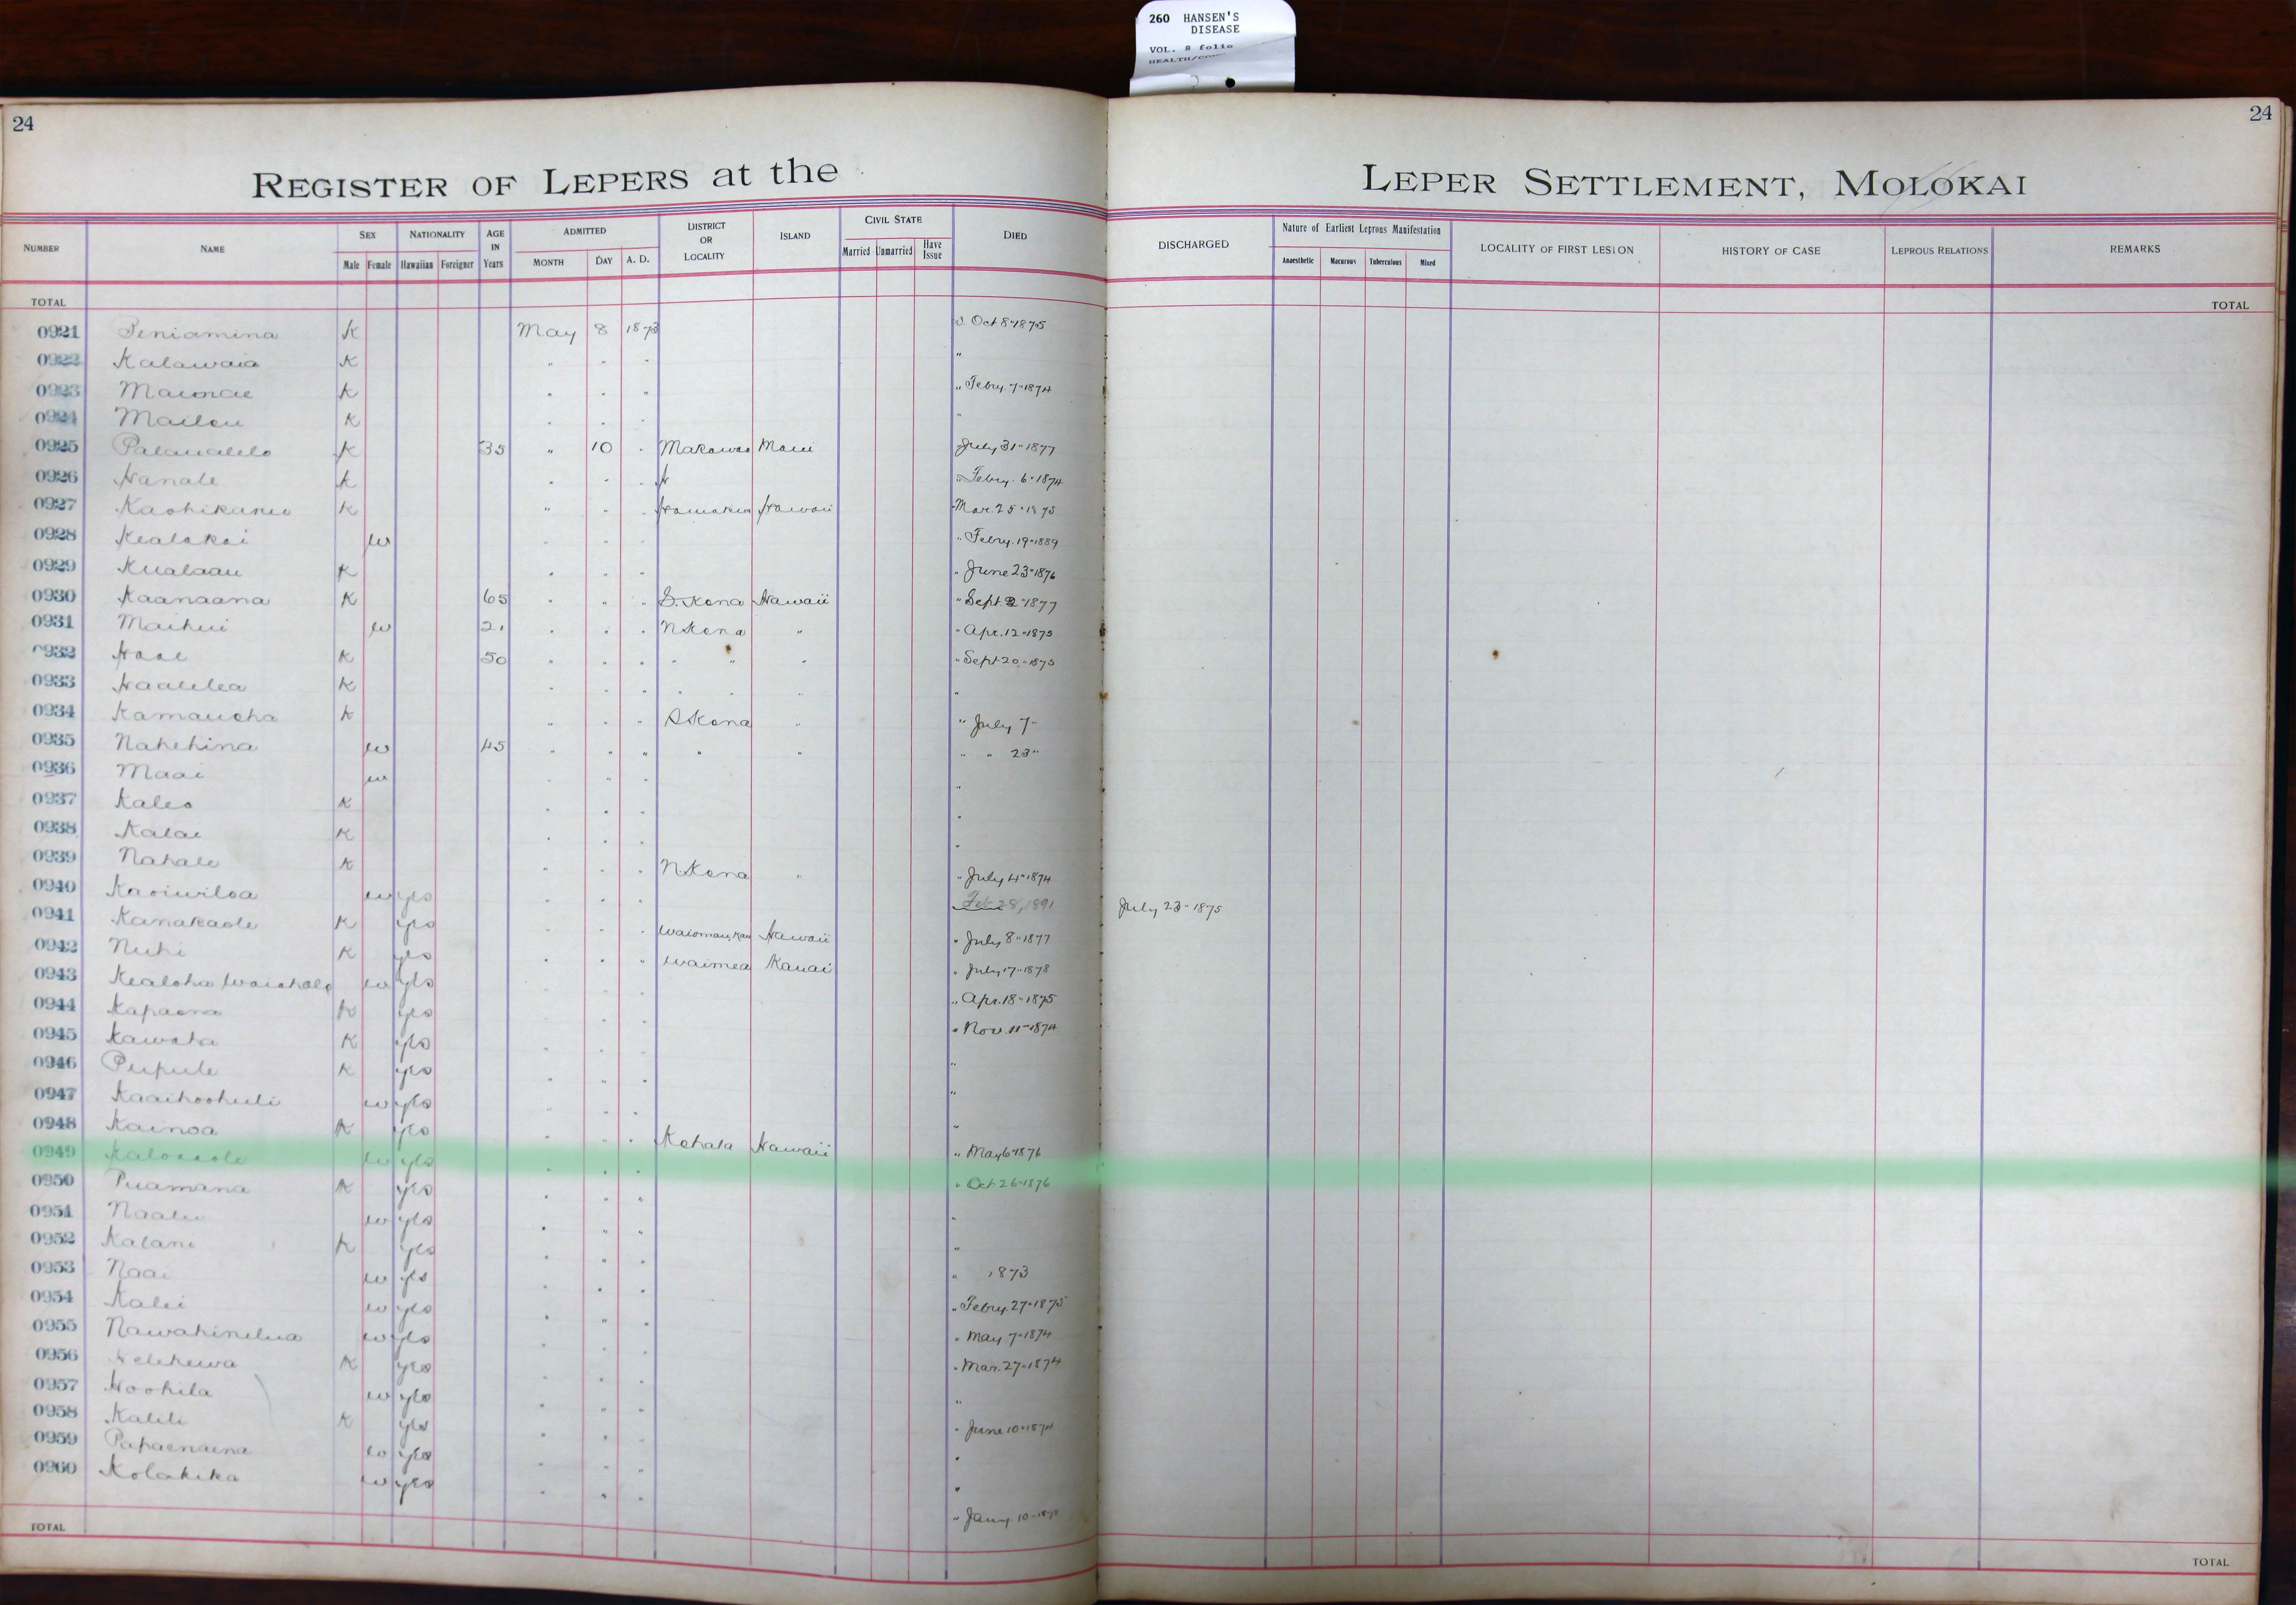 260 HANSEN'S
DISEASE
VOL. 8 folio
24
24
REGISTER OF LEPERS at the LEPER SETTLEMENT, MOLOKAI
NUMBER NAME SEX Male Female NATIONALITY Hawaiian Foreigner AGE IN Years ADMITTED MONTH DAY A. D. DISTRICT OR LOCALITY ISLAND CIVIL STATE Married Unmarried Have Issue DIED DISCHARGED Nature of Earliest Leprous Manifestation Anaesthetic Macurous Tuberculous Mixed LOCALITY OF FIRST LESION HISTORY OF CASE LEPROUS RELATIONS REMARKS
TOTAL TOTAL
0921 Peniamina K May 8 1873 Oct 8" 1875
0922 Kalawaia K " " " "
0923 K " " " " Febry. 7" 1874
0924 K " " " "
0925 K 35 " 10 " Makawao Maui " July 31" 1877
0926 Hanale K " " " H " Febry. 6" 1874
0927 K " " " Hamakua Hawaii " Mar. 25" 1875
0928 Kealakai w " " " " Febry. 19" 1889
0929 Kualaau K " " " " June 23" 1876
0930 Kaanaana K 65 " " " S. Kona Hawaii " Sept 2" 1877
0931 Maihui w 21 " " " N Kona " " Apr. 12" 1875
0932 K 50 " " " " " " " Sept 20" 1875
0933 Haalelea K " " " " " " "
0934 Kamauoha K " " " S Kona " " July 7"
0935 Nahehina w 45 " " " " " " " 23"
0936 Maai w " " " "
0937 Kaleo K " " " "
0938 Kalai K " " " "
0939 Nahale K " " " N Kona " " July 4" 1874
0940 Kaoiwiloa w yes " " " Feb 28, 1891 July 23" 1875
0941 Kanakaole K yes " " " Hawaii " July 8" 1877
0942 Nuhi K yes " " " Waimea Kauai " July 17" 1878
0943 Kealoha w yes " " " " Apr. 18" 1875
0944 Kapaona K yes " " " " Nov. 11" 1874
0945 Kawaha K yes " " " "
0946 Pupule K yes " " " "
0947 Kaaihoohuli w yes " " " "
0948 Kainoa K yes " " " Kohala Hawaii " May 6" 1876
0949 w yes " " " " Oct 26" 1876
0950 Puamana K yes " " " "
0951 w yes " " " "
0952 Kalani K yes " " " " 1873
0953 Naai w yes " " " " Febry. 27" 1875
0954 Kalei w yes " " " " May 7" 1874
0955 Nawahinelua w yes " " " " Mar. 27" 1874
0956 K yes " " " "
0957 Hoohila w yes " " " " June 10" 1874
0958 Kalili K yes " " " "
0959 Papaenaena w yes " " " "
0960 Kolakika w yes " " " " Jany. 10"
TOTAL TOTAL